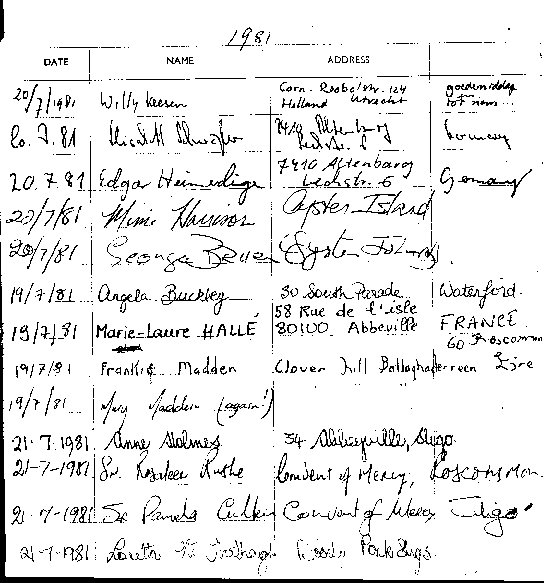 1981
DATE NAME ADDRESS
20/7/1981 Willy Keesen Corn. 124 goedemiddag
Holland Utrecht tot
20.7.81 Altenburg Germany
20.7.81 Edgar 7410 Altenburg Germany
Lechstr. 6
20/7/81 Mimi Harrison Oyster Island
20/7/81 George Oyster Island
19/7/81 Angela Buckley 30 South Parade Waterford.
58 Rue de l'isle
19/7/81 Marie-Laure HALLÉ 80100 Abbeville FRANCE
Co Roscommon
19/7/81 Frankie Madden Clover Hill Ballaghaderreen Eire
19/7/81 Mary Madden (again!)
21.7.1981 Anne Holmes 34 Abbeyville, Sligo.
21-7-1981 Sr. Convent of Mercy, Roscommon.
21-7-1981 Sr Cullen Convent of Mercy Sligo
21-7-1981 Loretto